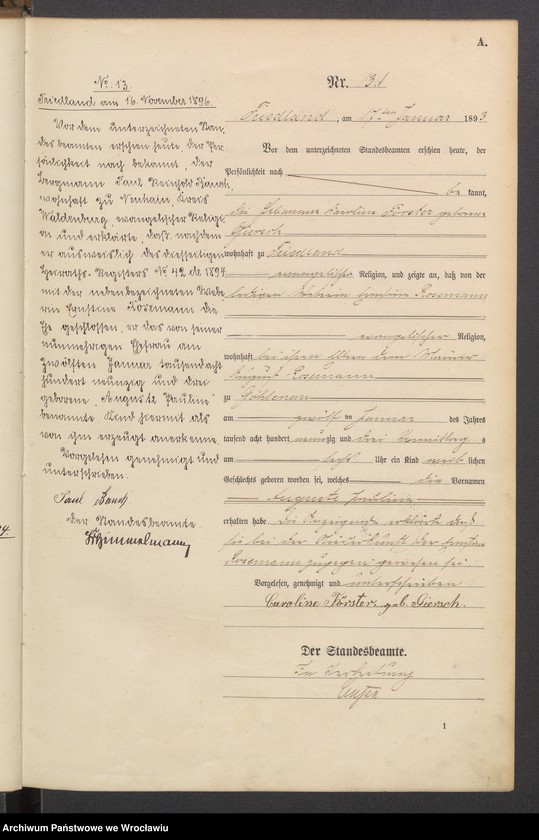 A.
No. 13.
Friedland am 16. November 1896.
Vor dem unterzeichneten Stan-
desbeamten erschien heute, der Per-
sönlichkeit nach bekannt, der
Bergmann Paul Reinhold Bansch,
wohnhaft zu Neuhain, Kreis
Waldenburg, evangelischer Religi-
on und erklärte, daß, nachdem
er ausweislich des diesseitigen
Heiraths-Registers No. 42 de 1894
mit der nebenbezeichneten Webe-
rin Ernstine Rosemann die
Ehe geschlossen, er das von seiner
nunmehrigen Ehefrau am
zwölften Januar tausendacht
hundert neunzig und drei
geborene, "Auguste Pauline"
benannte Kind hiermit als
von ihm erzeugt anerkenne.
Vorgelesen genehmigt und
unterschrieben.
Paul Bansch
Der Standesbeamte.
Himmelmann
Nr. 13.
Friedland, am 17ten Januar 1893
Vor dem unterzeichneten Standesbeamten erschien heute, der
Persönlichkeit nach
be kannt,
die Johanna Karoline Förster geborene
Giersch
wohnhaft zu Friedland
evangelischer Religion, und zeigte an, daß von der
ledigen Weberin Ernstine Rosemann
evangelischer Religion,
wohnhaft bei ihren Eltern dem Maurer
August Rosemann
zu Göhlenau
am zwölf ten Januar des Jahres
tausend acht hundert neunzig und drei Vormittag s
um Uhr ein Kind weib lichen
Geschlechts geboren worden sei, welches die Vornamen
Auguste Pauline
erhalten habe. Die Anzeigende erklärte daß
sie bei der Niederkunft der Ernstine
Rosemann zugegen gewesen sei.
Vorgelesen, genehmigt und unterschrieben
Caroline Förster, geb. Giersch.
Der Standesbeamte.
In Vertretung
1
Archiwum Państwowe we Wrocławiu